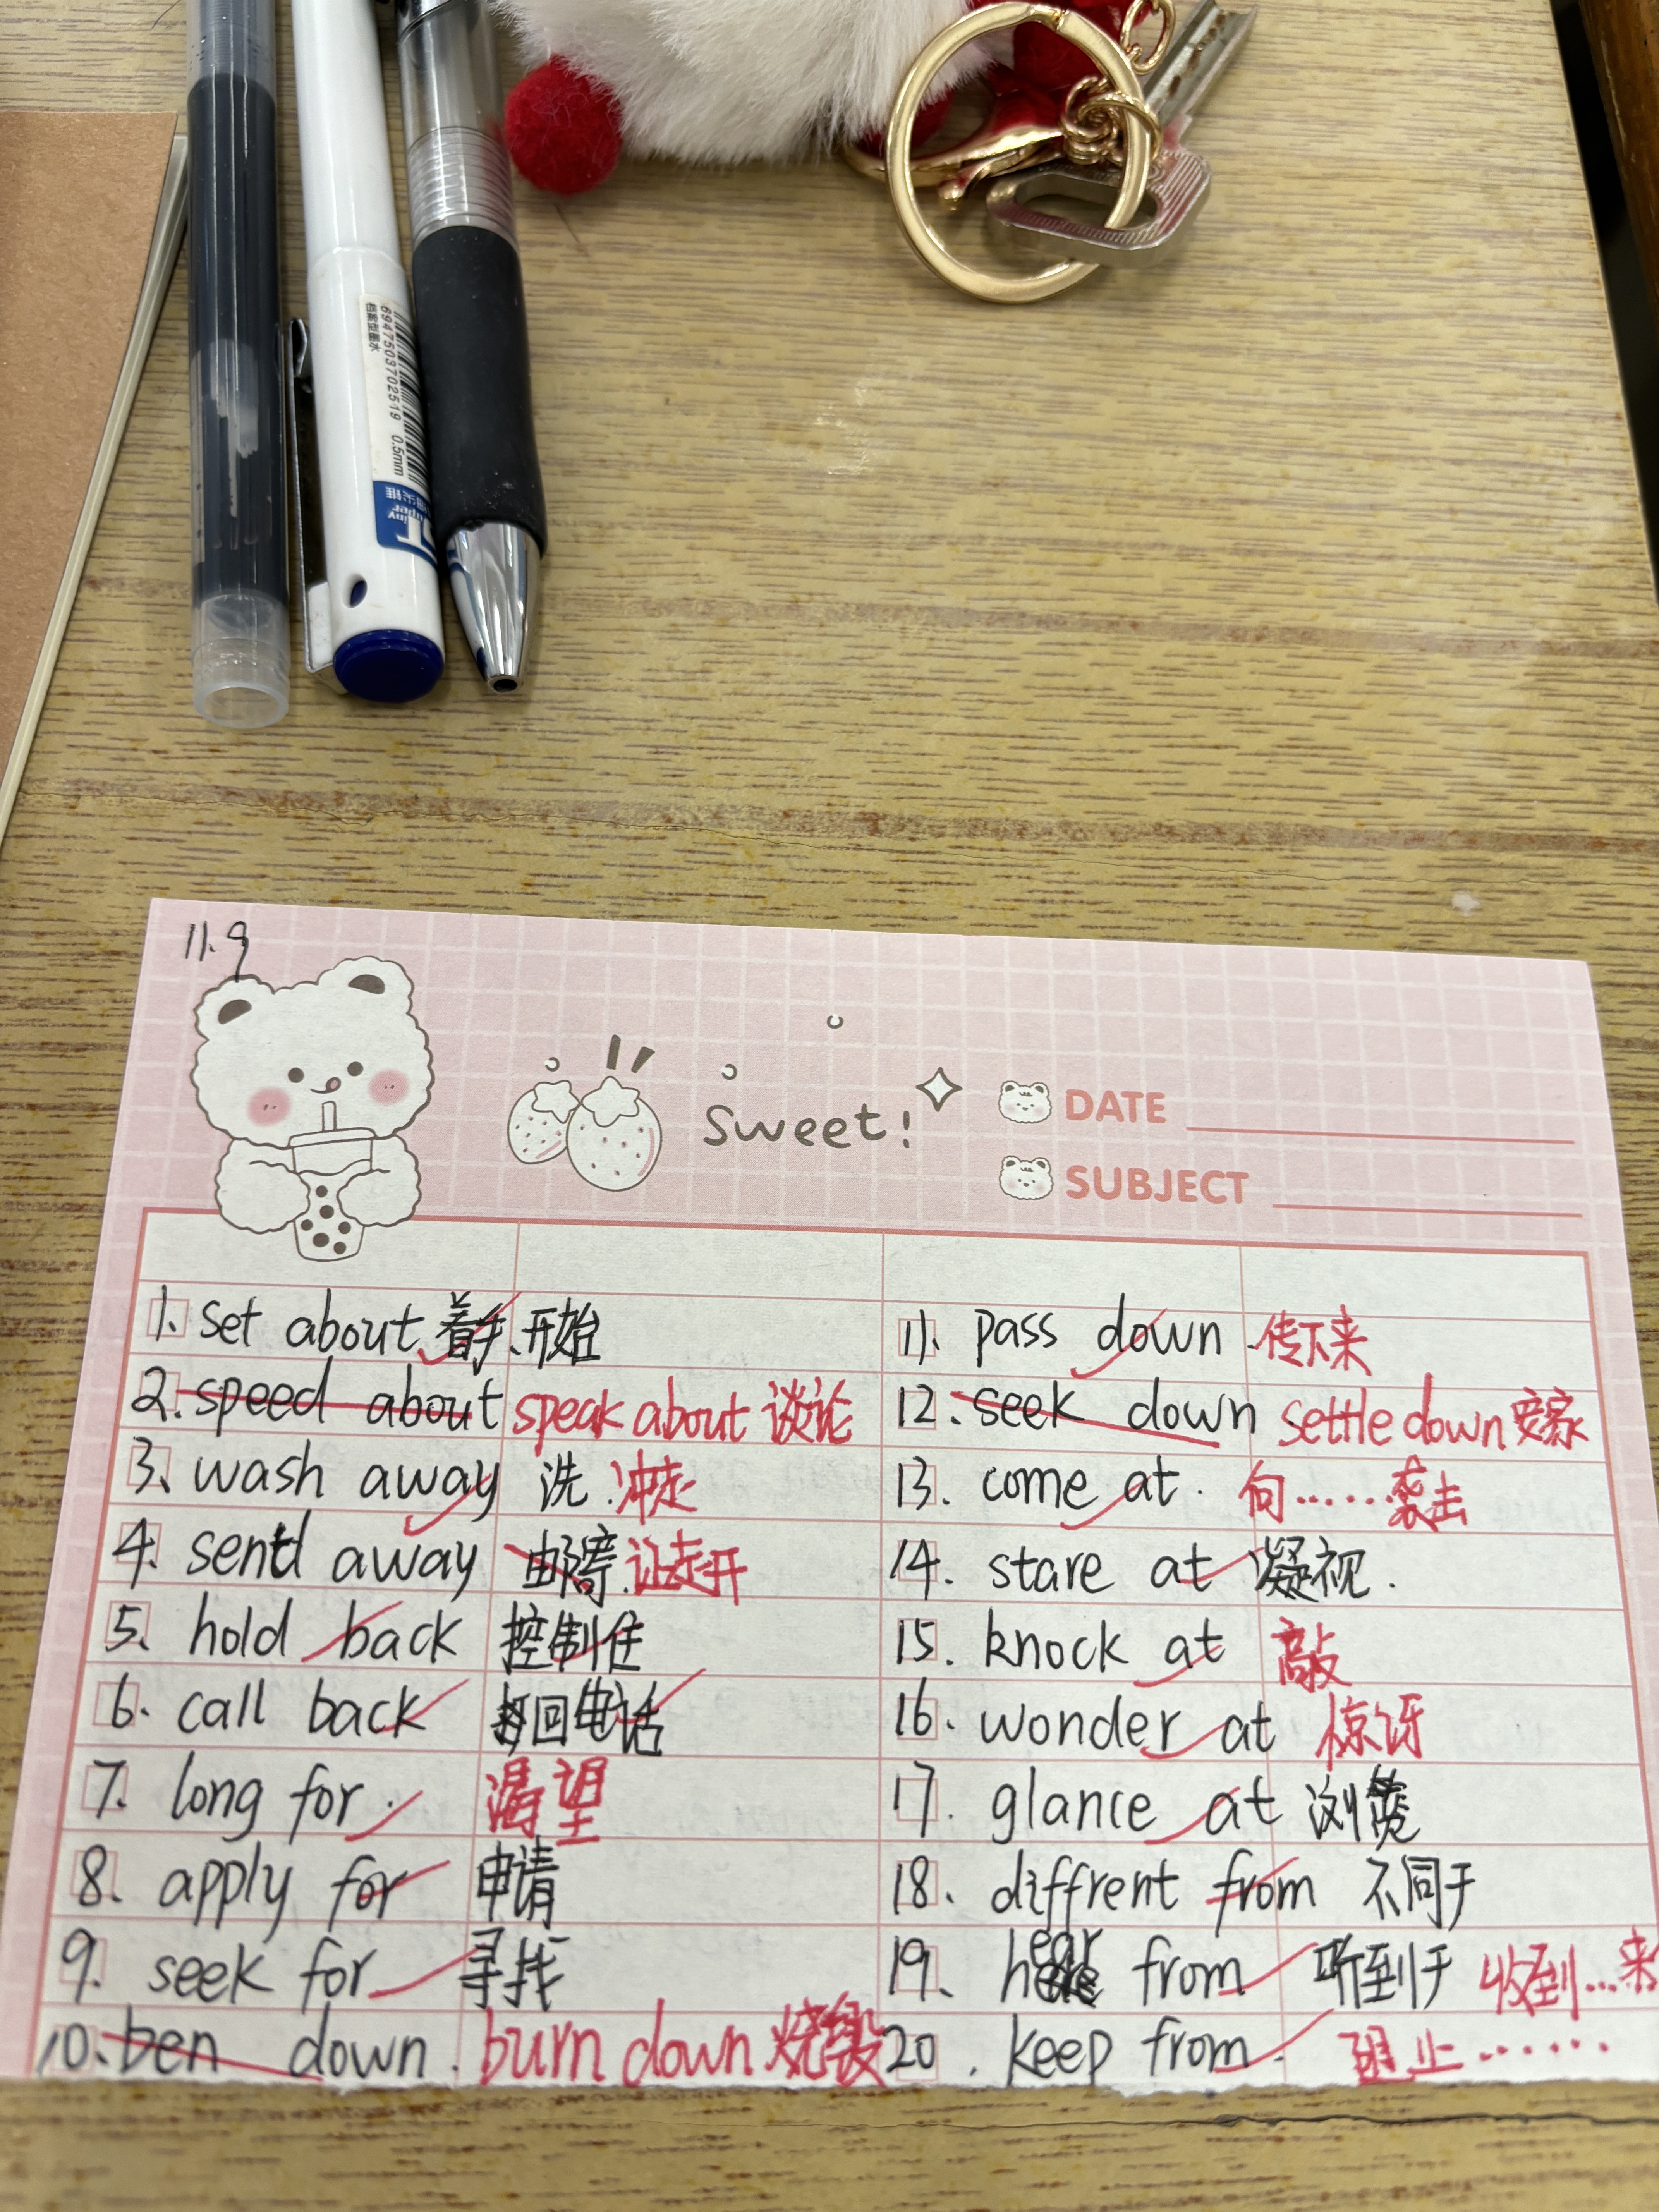 6947503702519 0.5mm
档案型墨水
11.9
sweet!
DATE
SUBJECT
1. set about 着手、开始
2. speed about speak about 谈论
3. wash away 洗.冲走
4. send away 邮寄.让走开
5. hold back 控制住
6. call back 打回电话
7. long for. 渴望
8. apply for 申请
9. seek for 寻找
10. ben down. burn down 烧毁
11. pass down. 传下来
12. seek down settle down 安家
13. come at. 向……袭击
14. stare at 凝视.
15. knock at 敲
16. wonder at 惊讶
17. glance at 浏览
18. diffrent from 不同于
19. hear from 听到于 收到…来
20. keep from. 阻止……